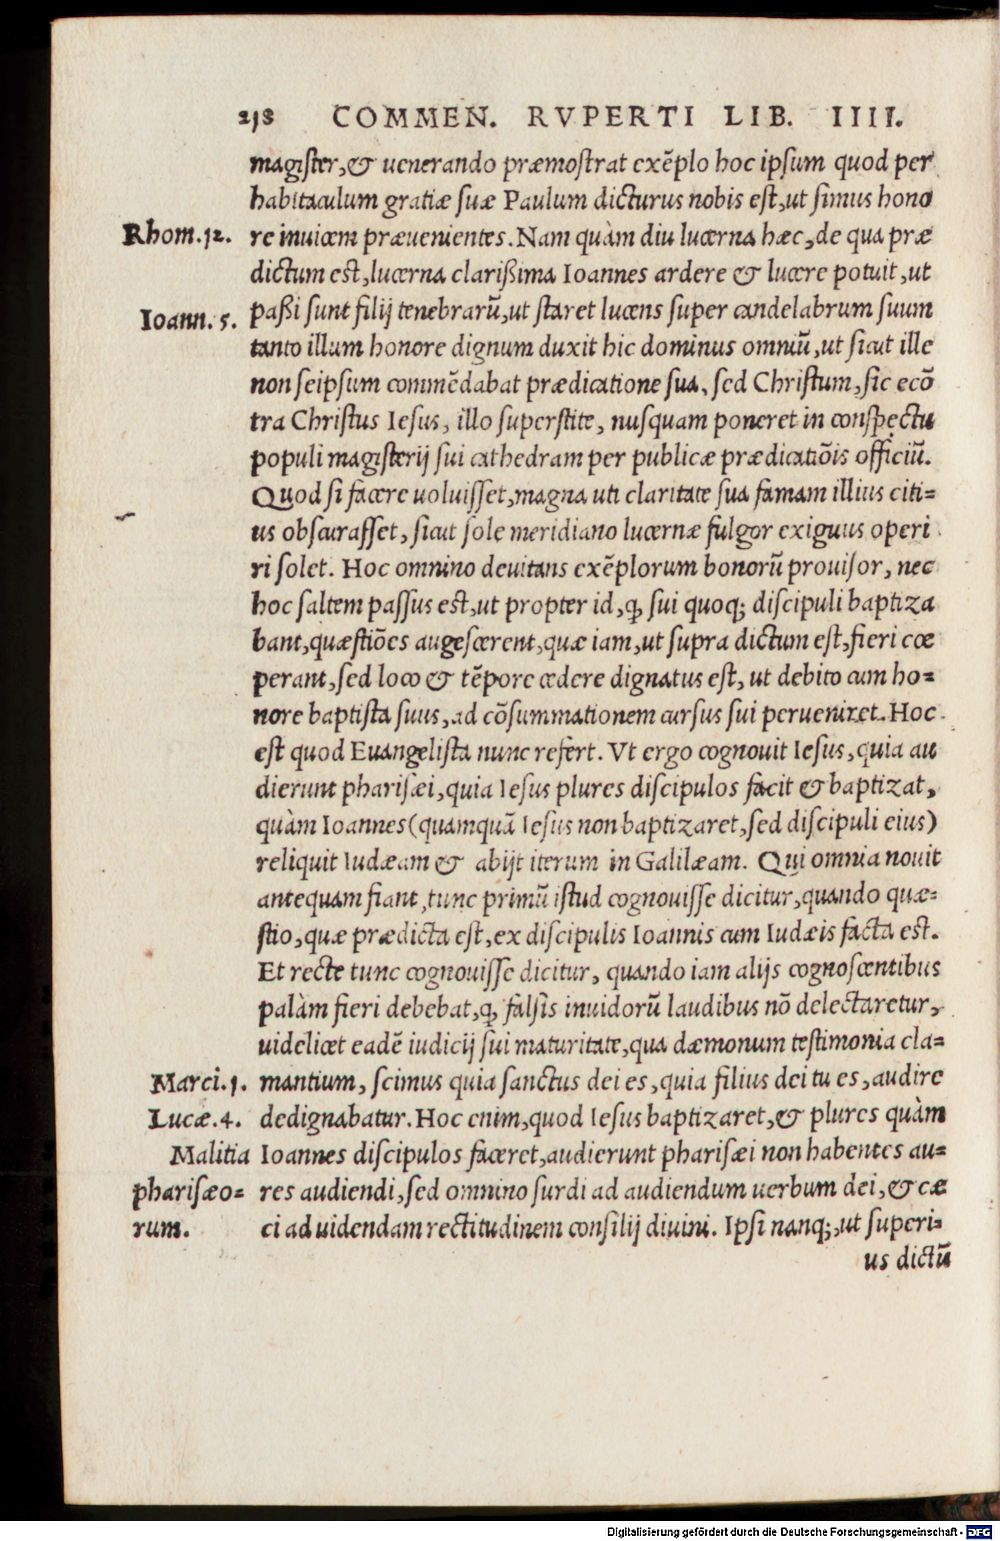 218 COMMEN. RVPERTI LIB. IIII.
magister,& uenerando præmostrat exẽplo hoc ipsum quod per
habitaculum gratiæ suæ Paulum dicturus nobis est,ut simus hono
Rhom.12. re inuicem præuenientes.Nam quàm diu lucerna hæc,de qua præ
dictum est,lucerna clarißima Ioannes ardere & lucere potuit,ut
Ioann.5. paßi sunt filij tenebrarũ,ut staret lucens super candelabrum suum
tanto illum honore dignum duxit hic dominus omniũ,ut sicut ille
non seipsum commẽdabat prædicatione sua, sed Christum,sic ecõ
tra Christus Iesus, illo superstite, nusquam poneret in conspectu
populi magisterij sui cathedram per publicæ prædicatiõis officiũ.
Quod si facere uoluisset,magna uti claritate sua famam illius citi=
us obscurasset,sicut sole meridiano lucernæ fulgor exiguus operi
ri solet. Hoc omnino deuitans exẽplorum bonorũ prouisor, nec
hoc saltem passus est,ut propter id,ꝙ sui quoq; discipuli baptiza
bant,quæstiões augescerent,quæ iam,ut supra dictum est,fieri cœ
perant,sed loco & tẽpore cedere dignatus est, ut debito cum ho=
nore baptista suus,ad cõsummationem cursus sui perueniret.Hoc
est quod Euangelista nunc refert. Vt ergo cognouit Iesus,quia au
dierunt pharisæi,quia Iesus plures discipulos facit & baptizat,
quàm Ioannes(quamquã Iesus non baptizaret,sed discipuli eius)
reliquit Iudæam & abijt iterum in Galilæam. Qui omnia nouit
antequam fiant,tunc primũ istud cognouisse dicitur,quando quæ=
stio,quæ prædicta est,ex discipulis Ioannis cum Iudæis facta est.
Et recte tunc cognouisse dicitur, quando iam alijs cognoscentibus
palàm fieri debebat,ꝙ falsis inuidorũ laudibus nõ delectaretur,
uidelicet eadẽ iudicij sui maturitate,qua dæmonum testimonia cla=
Marci.1. mantium, scimus quia sanctus dei es,quia filius dei tu es,audire
Lucæ.4. dedignabatur.Hoc enim,quod Iesus baptizaret,& plures quàm
Malitia Ioannes discipulos faceret,audierunt pharisæi non habentes au=
pharisæo= res audiendi,sed omnino surdi ad audiendum uerbum dei,& cæ
rum. ci ad uidendam rectitudinem consilij diuini. Ipsi nanq;,ut superi=
us dictũ
Digitalisierung gefördert durch die Deutsche Forschungsgemeinschaft - DFG